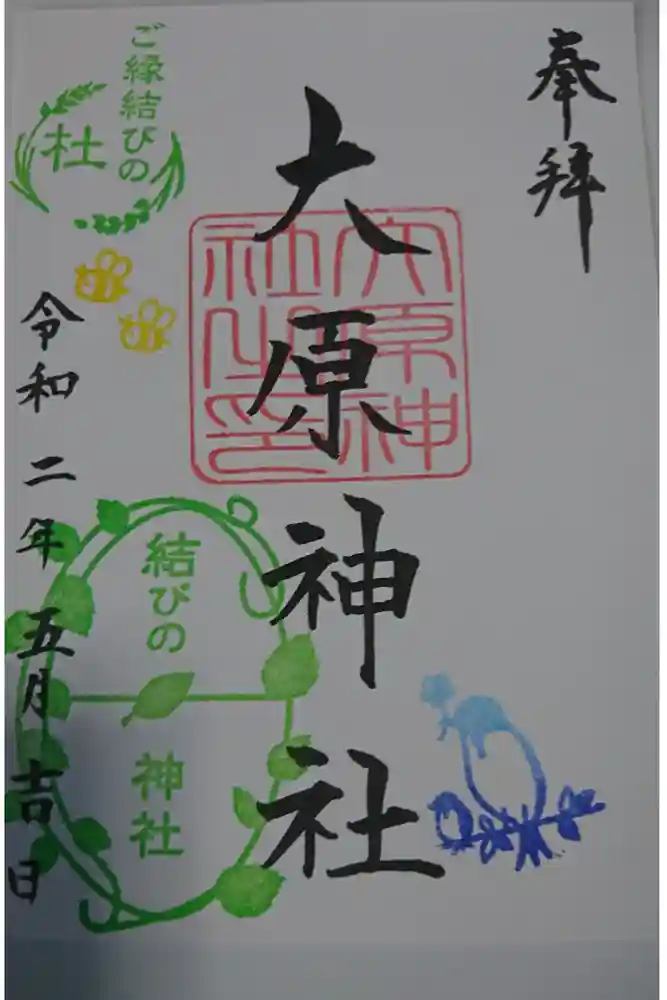 奉拝
大原神社
大原神社之印
ご縁結びの
杜
結びの
神社
令和二年五月吉日